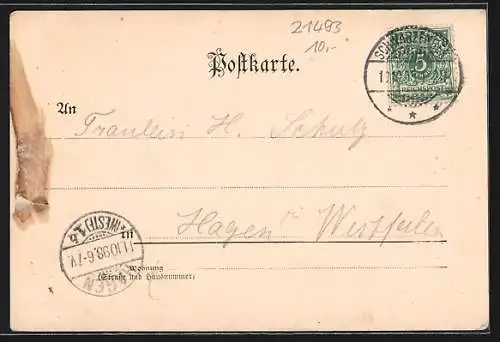 21493
10,-
Postkarte.
5
REICHSPOST
An
Fräulein H. Schulz
in
Hagen i. Westfalen
Wohnung
(Straße und Hausnummer)
HAGEN
(WESTF.) 1 b
11.10.98.6-7V.